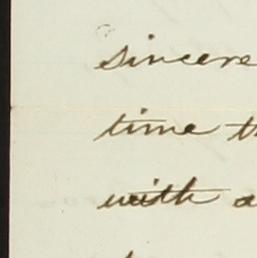 sincere
time
with a